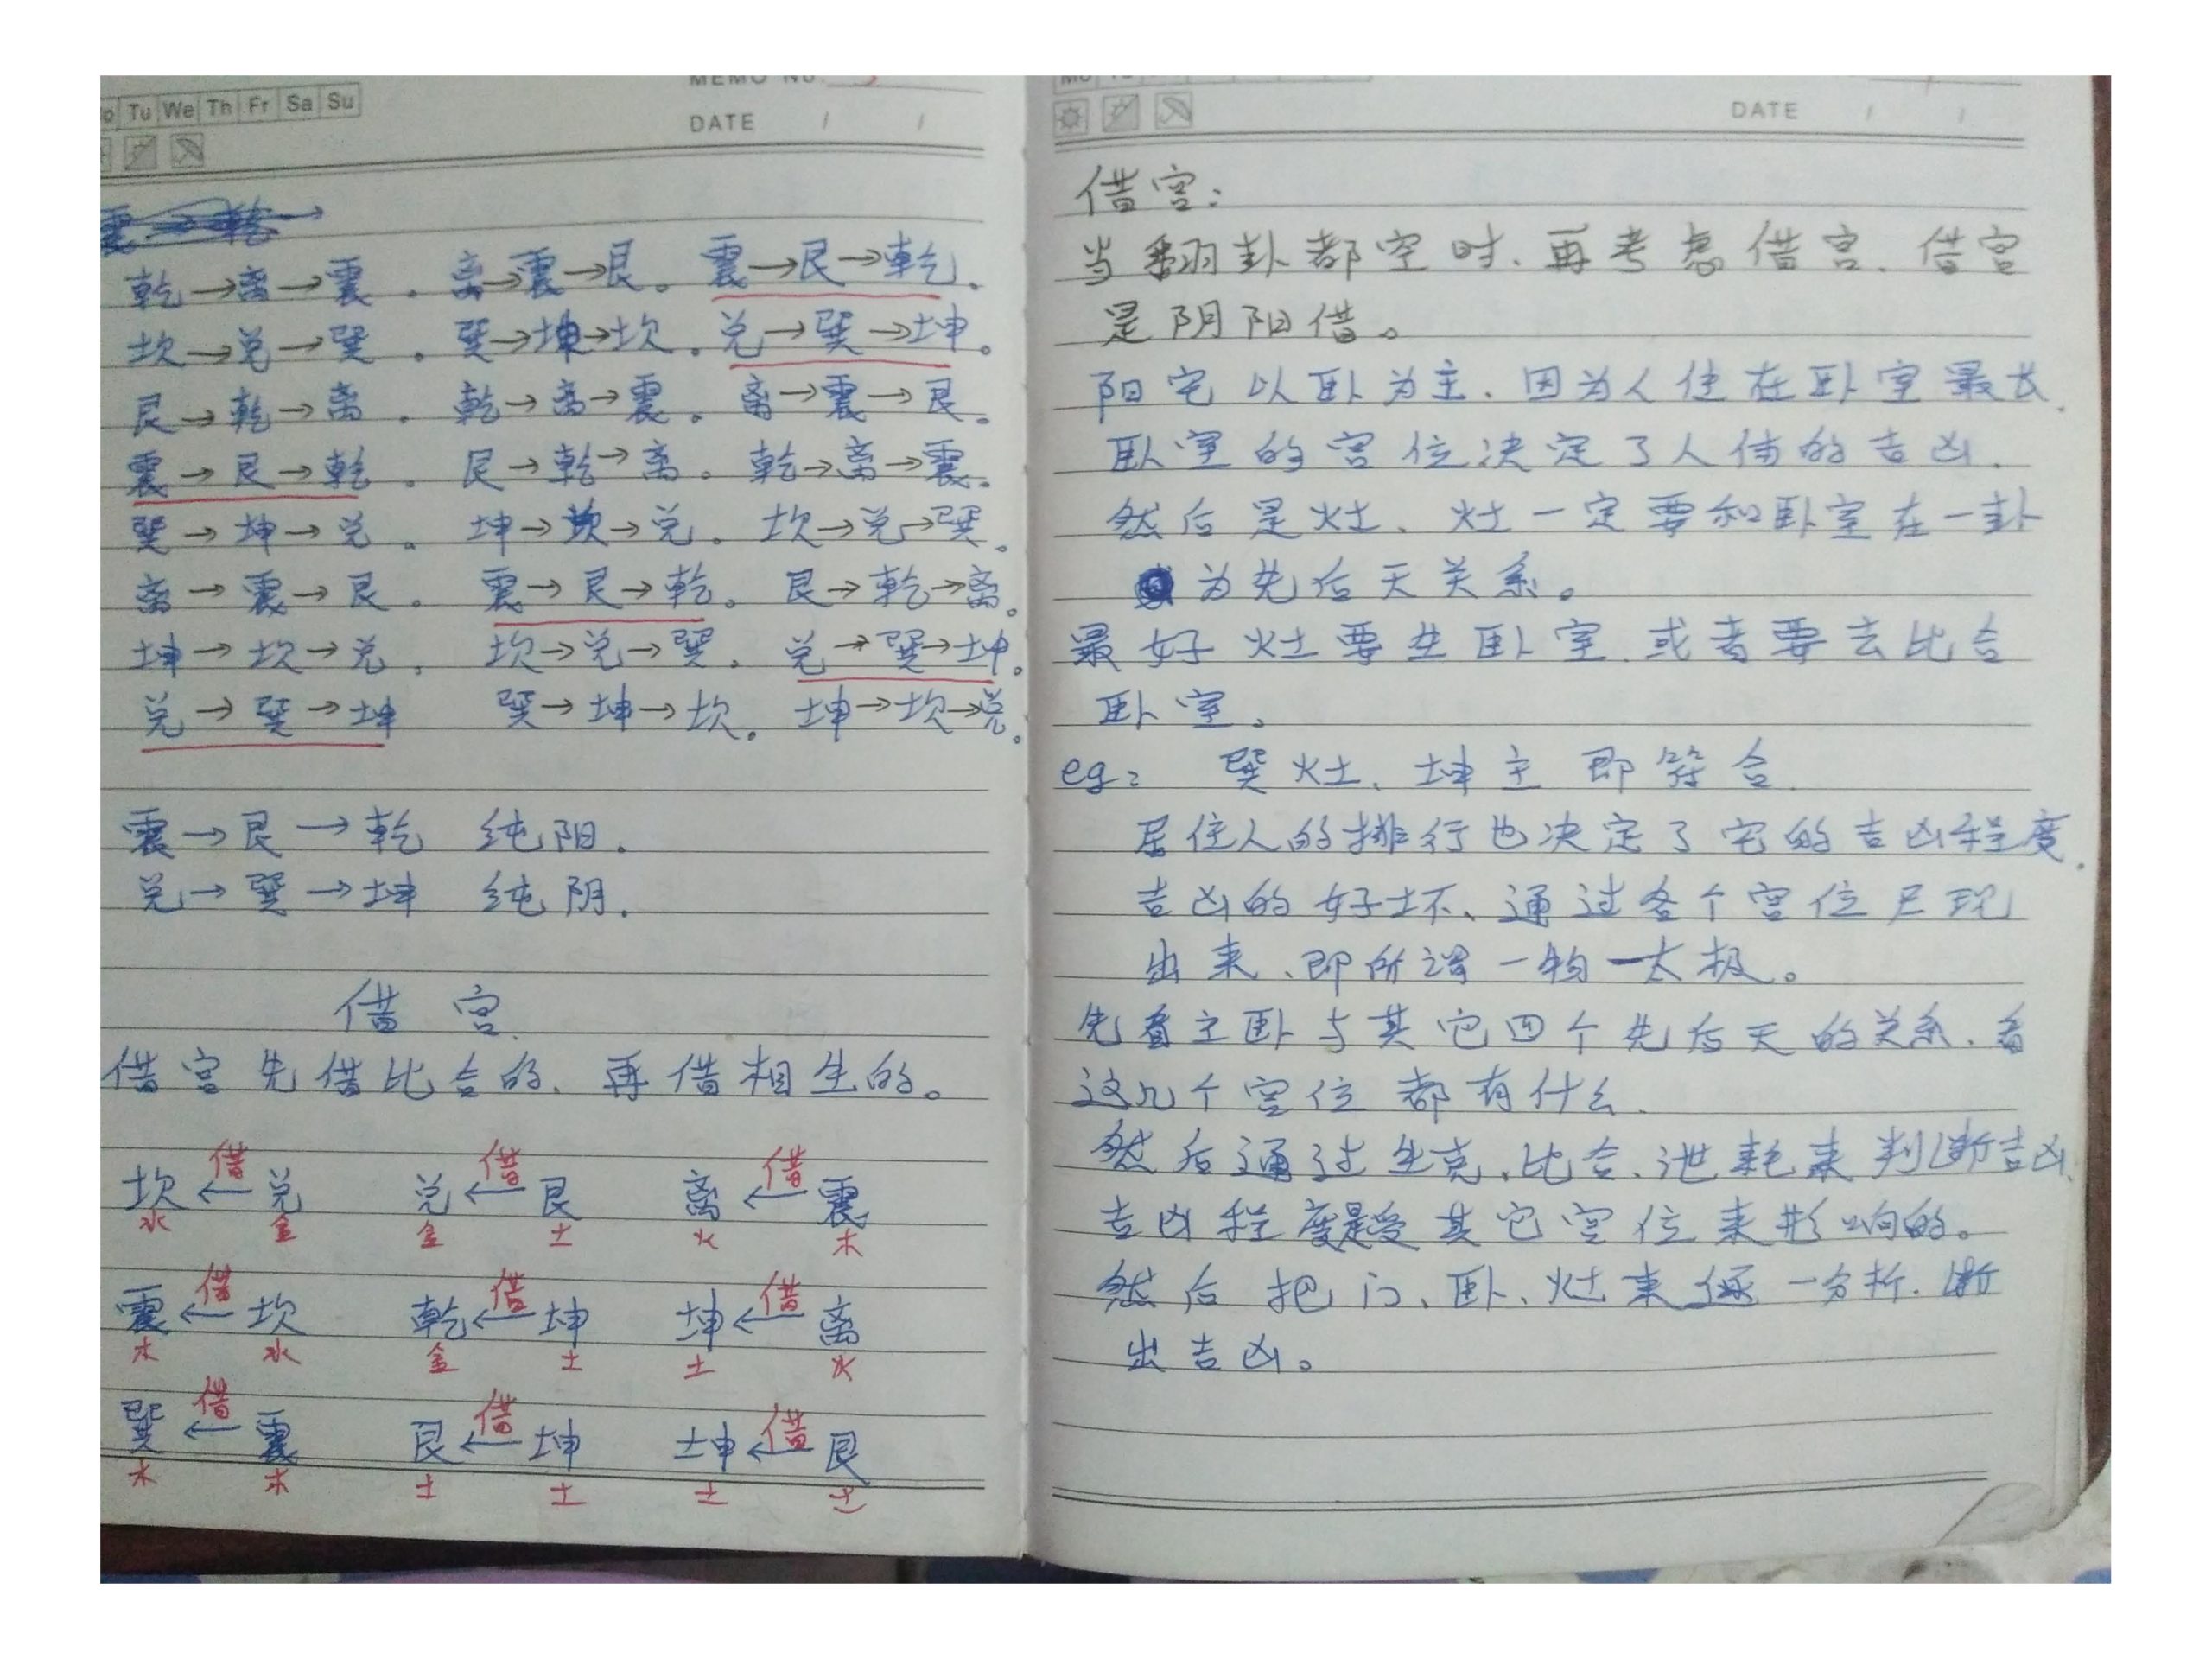 Tu We Th Fr Sa Su
MEMO NO.
DATE / /
乾→离→震. 离→震→艮。 震→艮→乾.
坎→兑→巽. 巽→坤→坎. 兑→巽→坤。
艮→乾→离. 乾→离→震。 离→震→艮。
震→艮→乾. 艮→乾→离。 乾→离→震。
巽→坤→兑。 坤→坎→兑. 坎→兑→巽。
离→震→艮. 震→艮→乾。 艮→乾→离。
坤→坎→兑. 坎→兑→巽. 兑→巽→坤。
兑→巽→坤 巽→坤→坎。 坤→坎→兑。
震→艮→乾 纯阳.
兑→巽→坤 纯阴.
借宫.
借宫先借比合的、再借相生的。
借 借 借
坎←兑 兑←艮 离←震
水 金 金 土 火 木
借 借 借
震←坎 乾←坤 坤←离
木 水 金 土 土 火
借 借 借
巽←震 艮←坤 坤←艮
木 木 土 土 土 土
DATE / /
借宫:
当翻卦都空时、再考虑借宫、借宫
是阴阳借。
阳宅以卧为主、因为人住在卧室最长.
卧室的宫位决定了人体的吉凶.
然后是灶、灶一定要和卧室在一卦
为先后天关系。
最好灶要生卧室.或者要去比合
卧室。
eg: 巽灶、坤主即符合.
居住人的排行也决定了宅的吉凶程度.
吉凶的好坏、通过各个宫位
出来、即所谓一物一太极。
先看主卧与其它四个先后天的关系.看
这几个宫位都有什么.
然后通过生克、比合、泄耗来判断吉凶.
吉凶程度是受其它宫位来影响的。
然后把门、卧、灶来逐一分析.断
出吉凶。